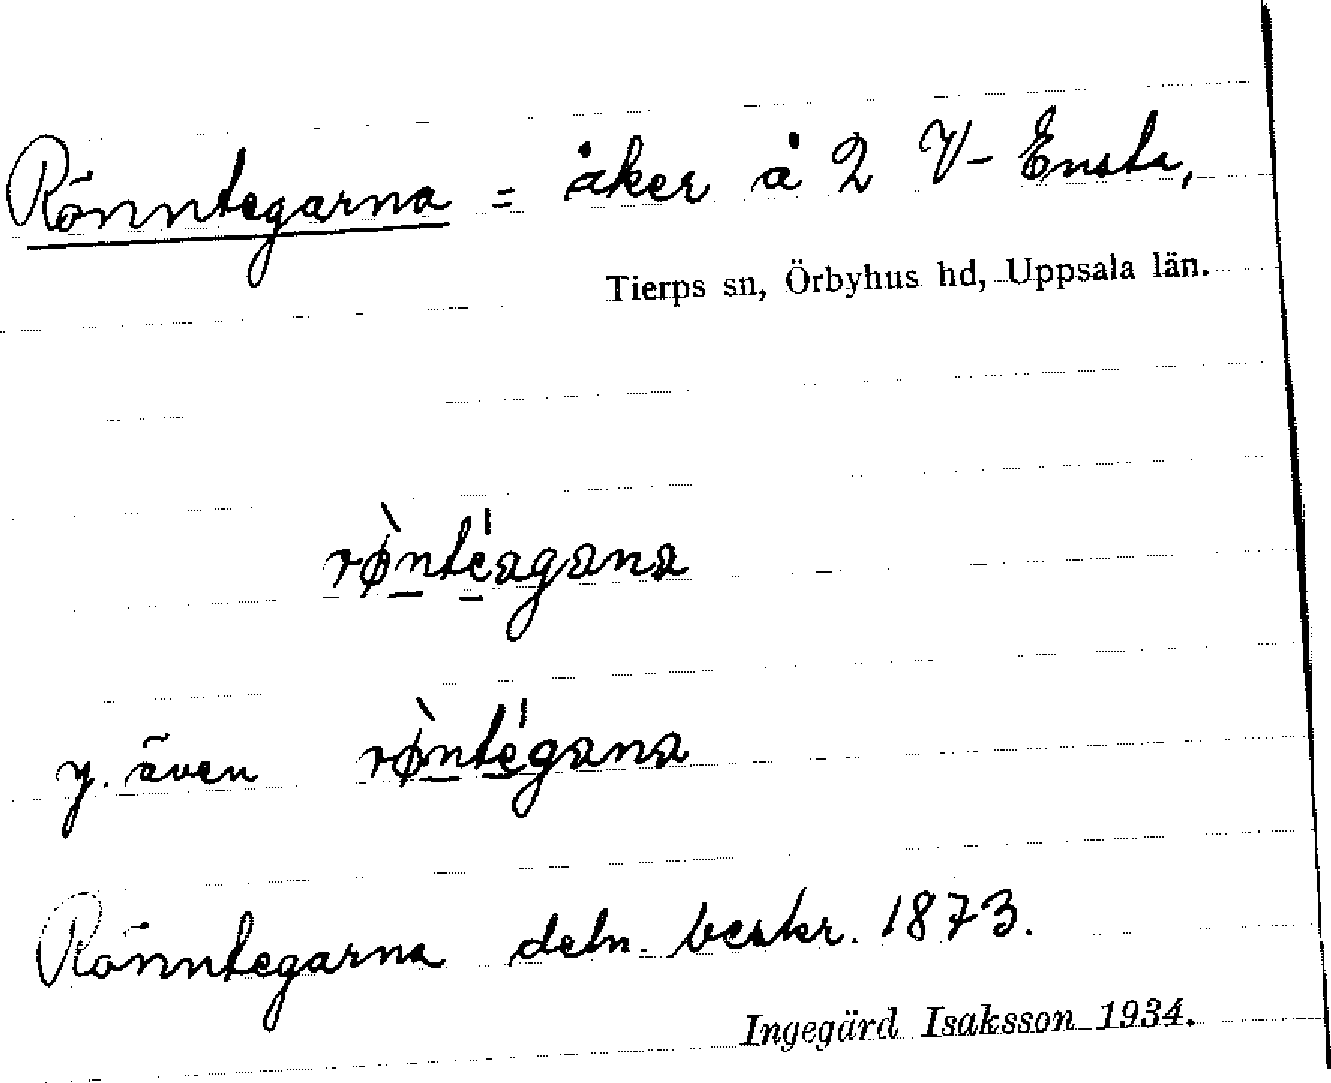 Rönntegarna = åker å 2 V-Ensta,
Tierps sn, Örbyhus hd, Uppsala län.
rø̀ntéagana
y. även rø̀ntégana
Rönntegarna deln. beskr. 1873.
Ingegärd Isaksson 1934.